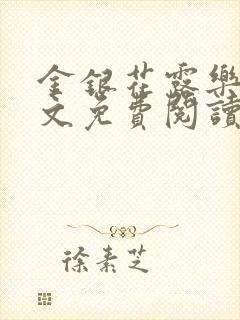 金銀花露樂
文免費閱讀
徐素芝